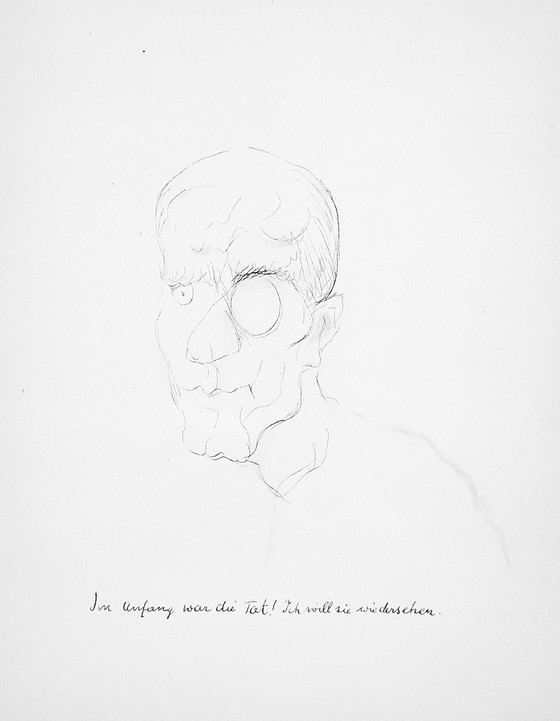 Im Anfang war die Tat! Ich will sie wiedersehen.